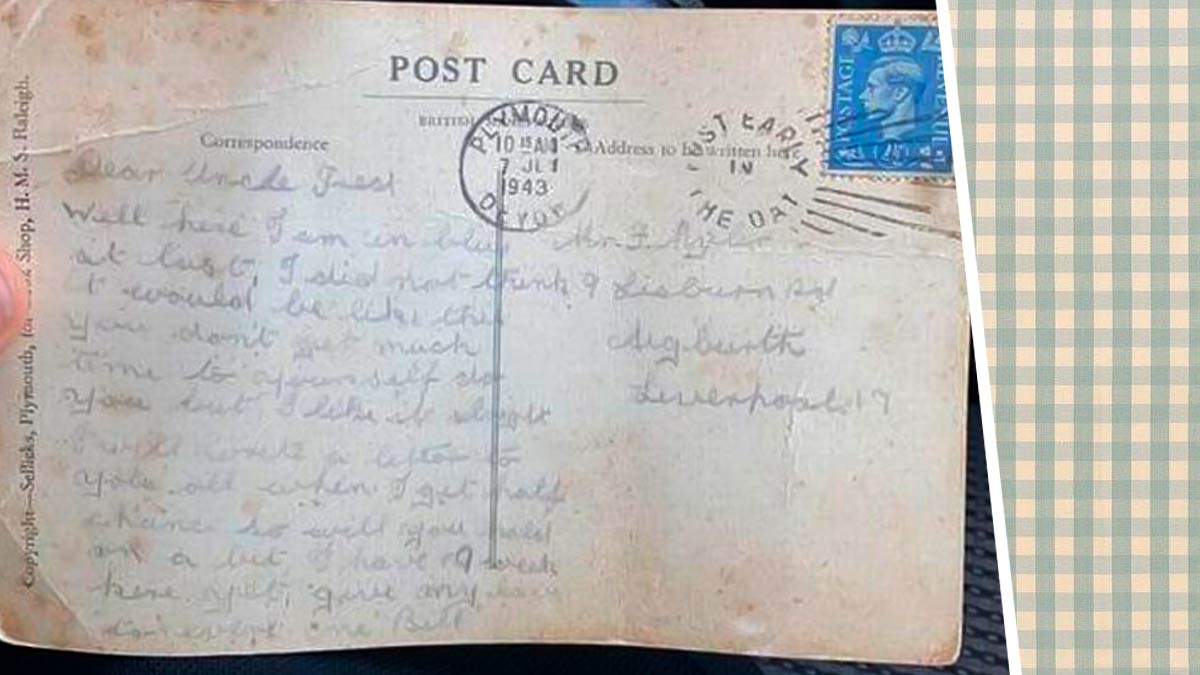 POST CARD
BRITISH
Correspondence
Address to be written here
PLYMOUTH
10 15 AM
7 JL
1943
DEVON
POST EARLY
IN
THE DAY
POSTAGE
REVENUE
Dear Uncle Fred
Well here I am in blue
at last, I did not think
I would be like this
You don't get much
time to yourself do
you but I like it alright
I will write a letter to
you all when I get half
chance so will you hold
on a bit I have 9 week
here yet, give my love
to everyone Bill
Mr F
9 Lisburn Rd
Aigburth
Liverpool. 17
Copyright—Sellicks, Plymouth, for Shop, H. M. S. Raleigh.